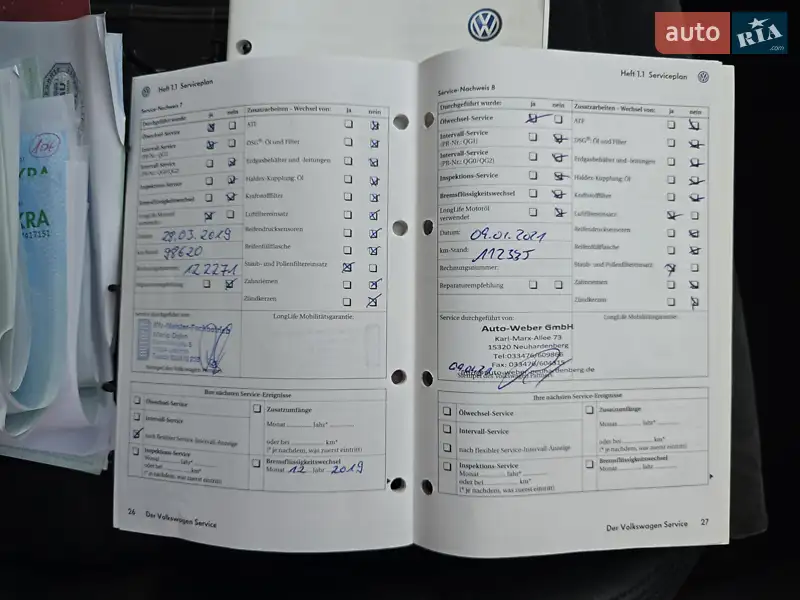 auto
RIA
.com
10€
KRA
Heft 1.1 Serviceplan
Service-Nachweis 7
Durchgeführt wurde: ja nein
Zusatzarbeiten - Wechsel von: ja nein
Ölwechsel-Service
Intervall-Service
(PR-Nr. QG1)
Intervall-Service
(PR-Nr. QG0/QG2)
Inspektions-Service
Bremsflüssigkeitswechsel
LongLife Motoröl
verwendet
ATF
DSG®: Öl und Filter
Erdgasbehälter und -leitungen
Haldex-Kupplung: Öl
Kraftstofffilter
Luftfiltereinsatz
Reifendrucksensoren
Reifenfüllflasche
Staub- und Pollenfiltereinsatz
Zahnriemen
Zündkerzen
28.03.2019
98620
122271
Reparaturempfehlung
Service durchgeführt von:
LongLife Mobilitätsgarantie:
Ihre nächsten Service-Ereignisse
Ölwechsel-Service
Intervall-Service
nach flexibler Service-Intervall-Anzeige
Inspektions-Service
Monat Jahr*
oder bei km*
(* je nachdem, was zuerst eintritt)
Zusatzumfänge
Monat Jahr*
oder bei km*
(* je nachdem, was zuerst eintritt)
Bremsflüssigkeitswechsel
Monat 12 Jahr 2019
26 Der Volkswagen Service
Heft 1.1 Serviceplan
Service-Nachweis 8
Durchgeführt wurde: ja nein
Zusatzarbeiten - Wechsel von: ja nein
Ölwechsel-Service
Intervall-Service
(PR-Nr. QG1)
Intervall-Service
(PR-Nr. QG0/QG2)
Inspektions-Service
Bremsflüssigkeitswechsel
LongLife Motoröl
verwendet
Datum: 09.01.2021
km-Stand: 112395
Rechnungsnummer:
Reparaturempfehlung
ATF
DSG®: Öl und Filter
Erdgasbehälter und -leitungen
Haldex-Kupplung: Öl
Kraftstofffilter
Luftfiltereinsatz
Reifendrucksensoren
Reifenfüllflasche
Staub- und Pollenfiltereinsatz
Zahnriemen
Zündkerzen
Service durchgeführt von:
LongLife Mobilitätsgarantie:
Auto-Weber GmbH
Karl-Marx-Allee 73
15320 Neuhardenberg
Tel:033476/609866
Fax: 033476/604315
Stempel des Volkswagen Partners
Ihre nächsten Service-Ereignisse
Ölwechsel-Service
Intervall-Service
nach flexibler Service-Intervall-Anzeige
Inspektions-Service
Monat Jahr*
oder bei km*
(* je nachdem, was zuerst eintritt)
Zusatzumfänge
Monat Jahr*
oder bei km*
(* je nachdem, was zuerst eintritt)
Bremsflüssigkeitswechsel
Monat Jahr
Der Volkswagen Service 27